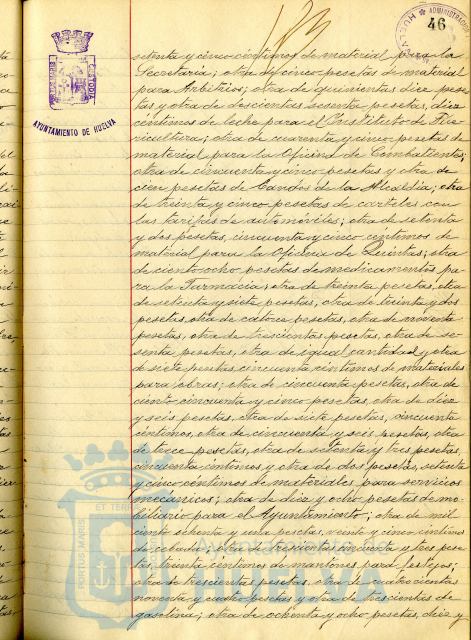 ADMINISTRACION
HUELVA
46
PORTUS MARIS
CUSTODIA
AYUNTAMIENTO DE HUELVA
setenta y cinco centimos de material para la
Secretaria; otra de cinco pesetas de material
para Arbitrios; otra de quinientas diez pese-
tas y otra de doscientas sesenta pesetas, diez
centimos de leche para el Instituto de
ricultura; otra de cuarenta y cinco pesetas de
material para la Oficina de Combatientes;
otra de cincuenta y cinco pesetas y otra de
cien pesetas de de la Alcaldia; otra
de treinta y cinco pesetas de carteles con
las tarifas de automóviles; otra de setenta
y dos pesetas, cincuenta y cinco centimos de
material para la Oficina de Quintas; otra
de ciento ocho pesetas de medicamentos pa-
ra la Farmacia; otra de treinta pesetas, otra
de setenta y siete pesetas, otra de treinta y dos
pesetas, otra de catorce pesetas, otra de noventa
pesetas, otra de trescientas pesetas, otra de se-
senta pesetas, otra de igual cantidad y otra
de siete pesetas cincuenta centimos de materiales
para obras; otra de cincuenta pesetas, otra de
ciento cincuenta y cinco pesetas, otra de diez
y seis pesetas, otra de siete pesetas, cincuenta
centimos, otra de cincuenta y seis pesetas, otra
de trece pesetas, otra de setenta y tres pesetas,
cincuenta centimos y otra de dos pesetas, setenta
y cinco centimos de materiales para servicios
mecanicos; otra de diez y ocho pesetas de mo-
biliario para el Ayuntamiento; otra de mil
ciento ochenta y una pesetas, veinte y cinco centimos
de cebada; otra de cincuenta y tres pese-
tas, treinta centimos de mantones para festejos;
otra de trescientas pesetas, otra de cuatrocientas
noventa y cuatro pesetas y otra de trescientas de
gasolina; otra de ochenta y ocho pesetas, diez y
ET TERRAE
PORTUS MARIS
Ayuntamiento de
HUELVA